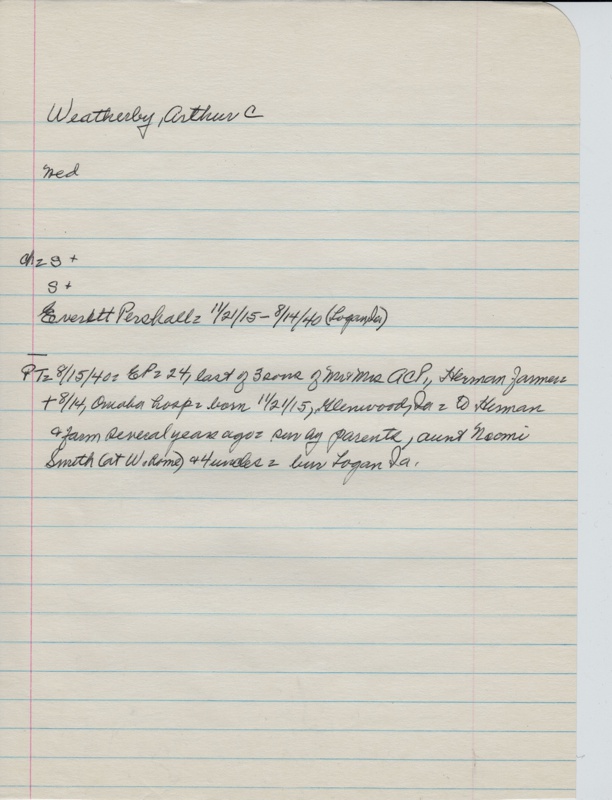 Weatherby, Arthur C
med
ch = S +
S +
Everett Pershall = 11/21/15 - 8/14/40 (Logan Ia)
PT = 8/15/40 = EP = 24, last of 3 sons of Mr & Mrs ACP,, Herman farmer =
+ 8/14, Omaha hosp = born 11/21/15, Glenwood, Ia = to Herman
& farm several years ago = sur by parents, aunt Noomi
Smith (at W. Rome) & 4 uncles = bur Logan Ia.